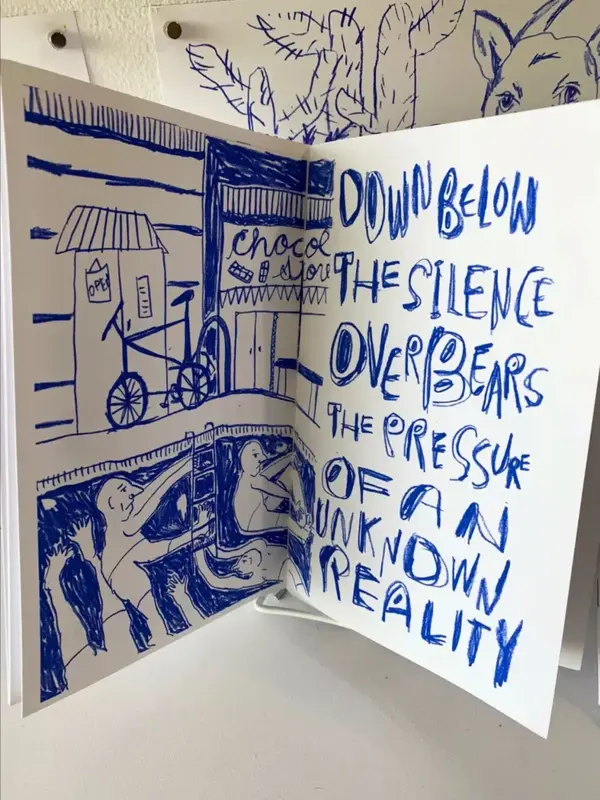 OPEN
chocol
store
DOWN BELOW
THE SILENCE
OVERBEARS
THE PRESSURE
OF AN
UNKNOWN
REALITY